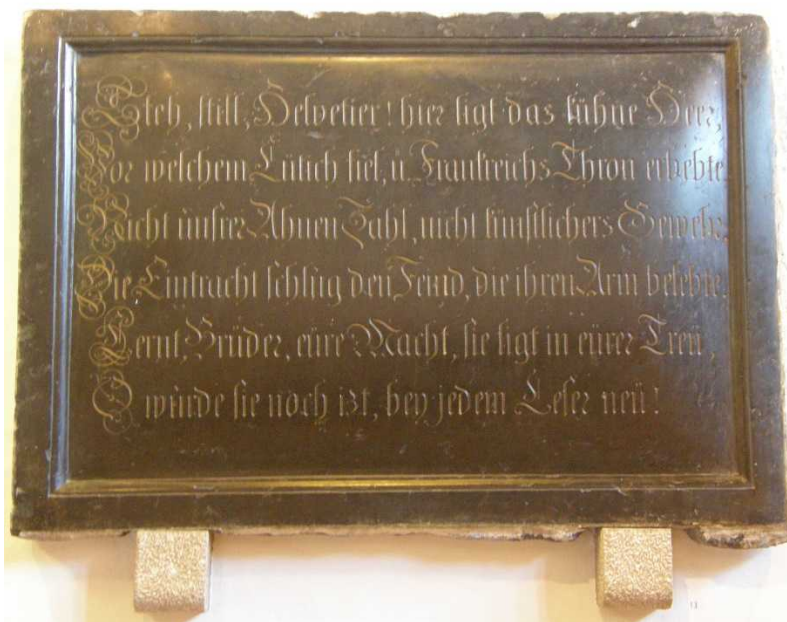 Steh, still, Helvetier! hier ligt das kühne Heer,
Vor welchem Lütich fiel, u. Frankreichs Thron erbebte
Nicht unsrer Ahnen Zahl, nicht künstlichers Gewehr,
Die Eintracht schlug den Feind, die ihren Arm belebte.
Lernt, Brüder, eüre Macht, sie ligt in eürer Treü,
O würde sie noch izt, bey jedem Leser neü!